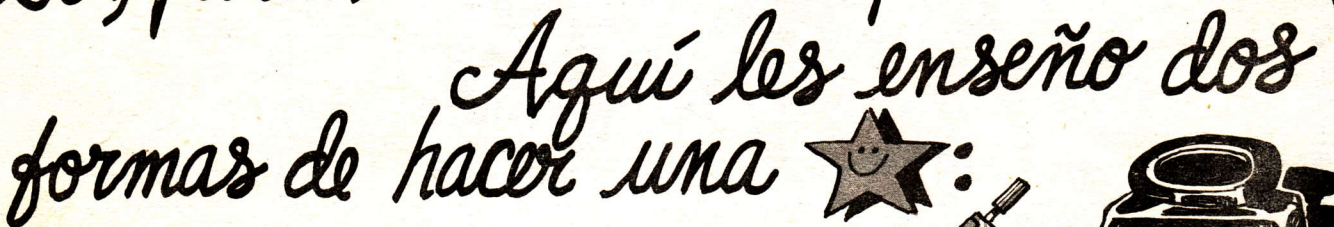 Aquí les enseño dos
formas de hacer una :